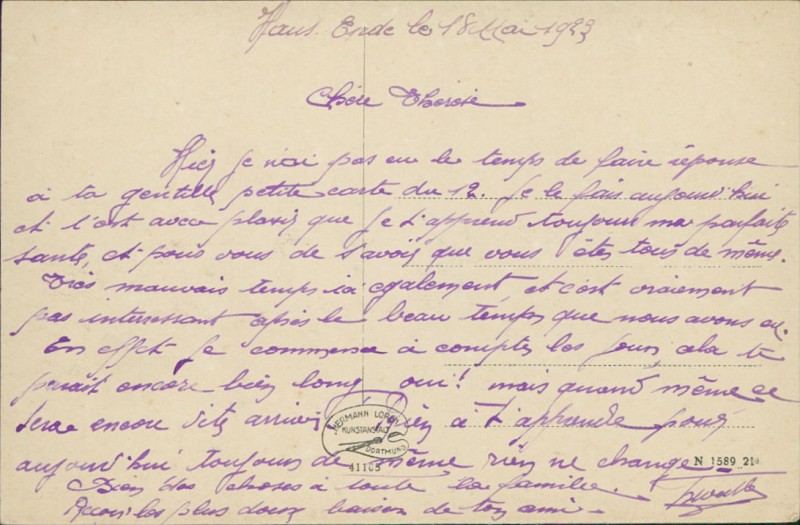 Haus. Ende le 18 Mai 1923
Chère Thérèse
Hier je n'ai pas eu le temps de faire réponse
à ta gentille petite carte du 12. Je le fais aujourd'hui
et c'est avec plaisir que je t'apprend toujours ma parfaite
santé, et pour vous de savoir que vous êtes tous de même.
Très mauvais temps ici egalement et c'est vraiement
pas interessant après le beau temps que nous avons eu.
En effet je commence à compter les jours, cela te
parait encore bien long oui! mais quand même ce
sera encore vite arrivé Rien à t'apprendre pour
aujourd'hui toujours de même rien ne change
Bien des choses à toute la famille.
Reçois les plus doux baisers de ton ami.
HERMANN LORCH
KUNSTANSTALT
DORTMUND
41105
N 1589 21